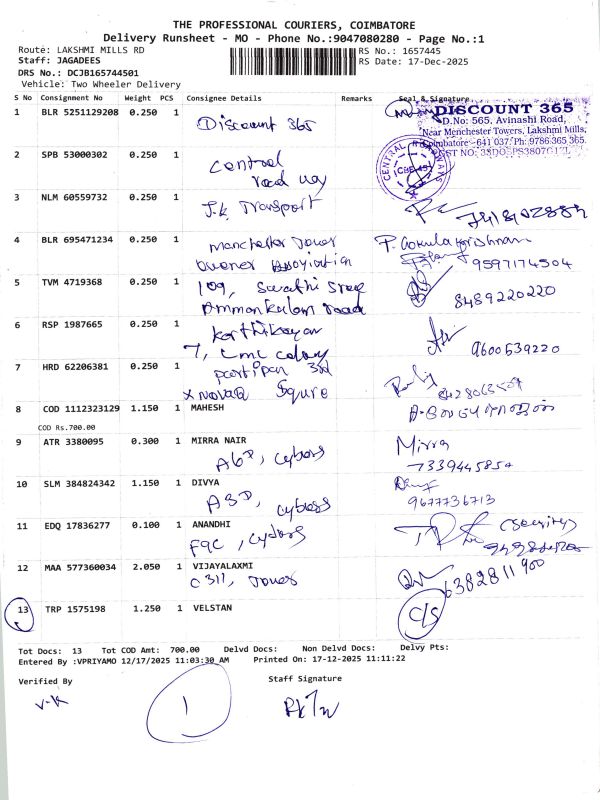 THE PROFESSIONAL COURIERS, COIMBATORE
Delivery Runsheet - MO - Phone No.:9047080280 - Page No.:1
Route: LAKSHMI MILLS RD
Staff: JAGADEES
DRS No.: DCJB165744501
Vehicle: Two Wheeler Delivery
RS No.: 1657445
RS Date: 17-Dec-2025
S No Consignment No Weight PCS Consignee Details Remarks Seal & Signature
1 BLR 5251129208 0.250 1 Discount 365
DISCOUNT 365
D.No: 565, Avinashi Road,
Near Menchester Towers, Lakshmi Mills,
Coimbatore - 641 037. Ph: 9786 365 365
2 SPB 53000302 0.250 1 Central
road way
3 NLM 60559732 0.250 1 J.K Transport
4 BLR 695471234 0.250 1 manchester Tower
owner
P. Gokulakrishnan
9597174504
5 TVM 4719368 0.250 1 109, Swathi
Ammankulam road
8489220220
6 RSP 1987665 0.250 1 Karthikayan
7, cmc colony
9600539220
7 HRD 62206381 0.250 1 partipan 3rd
Squre
8 COD 1112323129 1.150 1 MAHESH
COD Rs.700.00
9 ATR 3380095 0.300 1 MIRRA NAIR
Mirra
10 SLM 384824342 1.150 1 DIVYA
A3D,
9677736713
11 EDQ 17836277 0.100 1 ANANDHI
F9C,
12 MAA 577360034 2.050 1 VIJAYALAXMI
C311, Tower
6382811900
13 TRP 1575198 1.250 1 VELSTAN
C/S
Tot Docs: 13 Tot COD Amt: 700.00 Delvd Docs: Non Delvd Docs: Delvy Pts:
Entered By :VPRIYAMO 12/17/2025 11:03:30 AM Printed On: 17-12-2025 11:11:22
Verified By Staff Signature
V-K
1